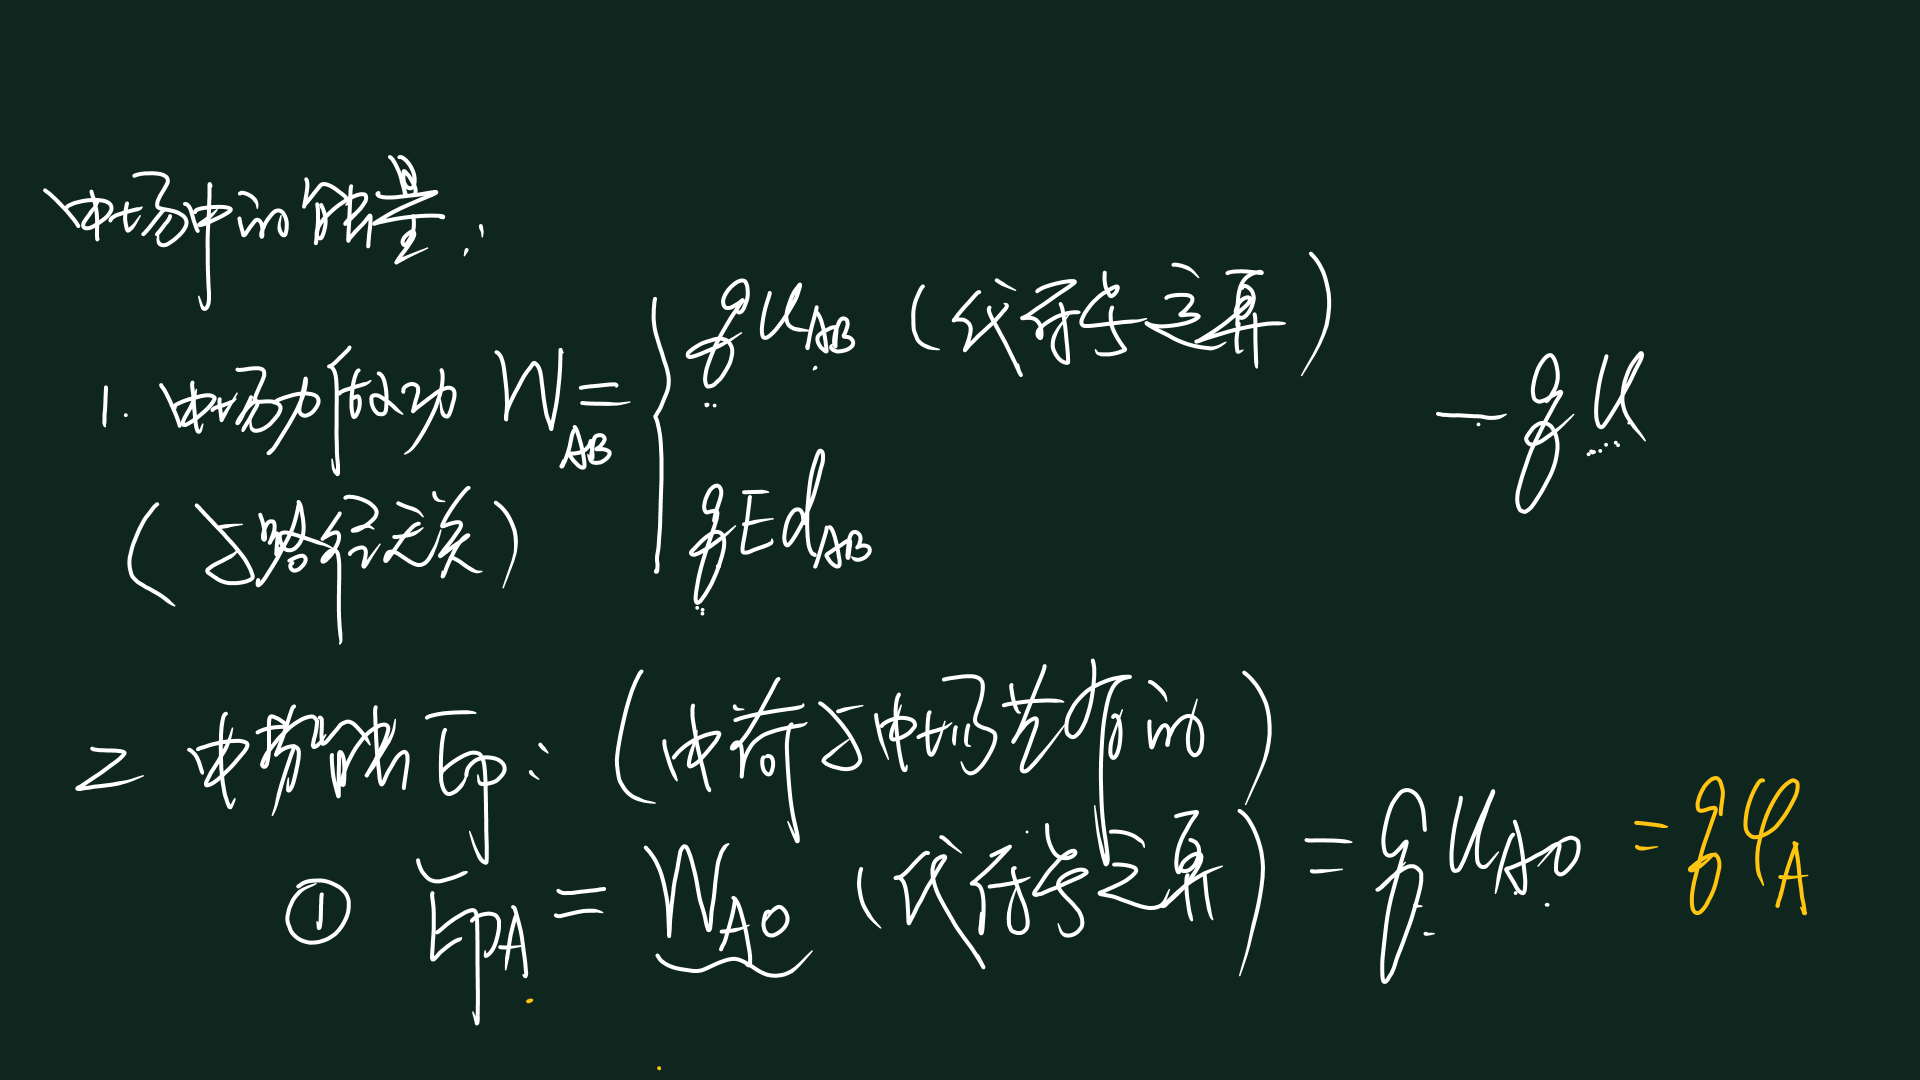 电场中的能量:
1. 电场力做功 W_AB = { qU_AB (代符号运算)
qEd_AB
-qU
(与路径无关)
2 电势能 Ep: (电荷与电场共有的)
① EpA = W_AO (代符号运算) = qU_AO = qφ_A